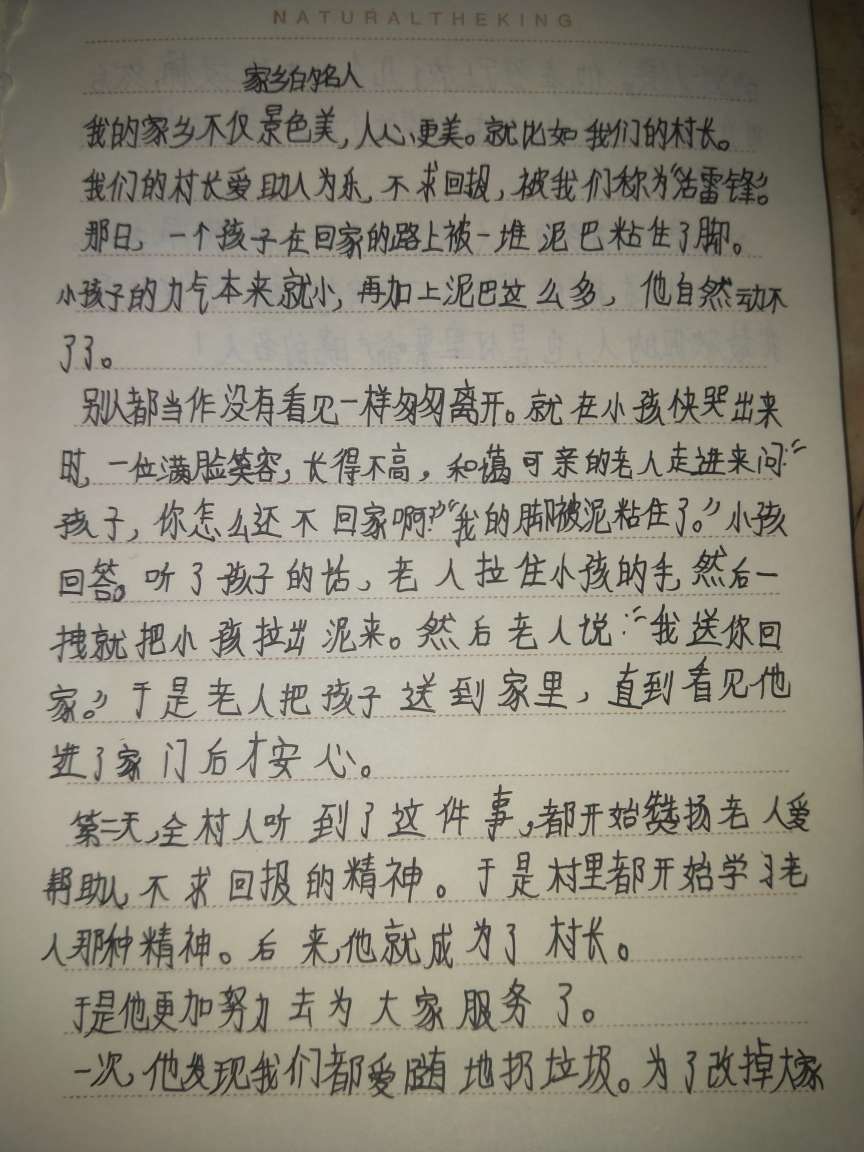 NATURALTHEKING
家乡的名人
我的家乡不仅景色美,人心更美。就比如我们的村长。
我们的村长爱助人为乐,不求回报,被我们称为“活雷锋”。
那日,一个孩子在回家的路上被一堆泥巴粘住了脚。
小孩子的力气本来就小,再加上泥巴这么多,他自然动不
了了。
别人都当作没有看见一样匆匆离开。就在小孩快哭出来
时,一位满脸笑容,长得不高,和蔼可亲的老人走进来问:“
孩子,你怎么还不回家啊?”“我的脚被泥粘住了。”小孩
回答。听了孩子的话,老人拉住小孩的手,然后一
拽就把小孩拉出泥来。然后老人说:“我送你回
家。”于是老人把孩子送到家里,直到看见他
进了家门后才安心。
第二天,全村人听到了这件事,都开始赞扬老人爱
帮助人,不求回报的精神。于是村里都开始学习老
人那种精神。后来,他就成为了村长。
于是他更加努力去为大家服务了。
一次,他发现我们都爱随地扔垃圾。为了改掉大家